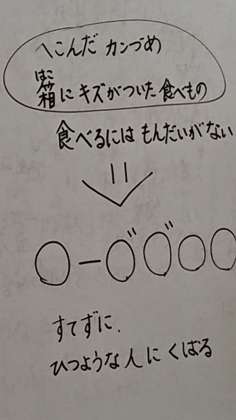 へこんだ カンづめ
箱(はこ)に キズがついた 食べもの
食べるには もんだいがない
○ー○゛○゛○○
すてずに、
ひつような人に くばる